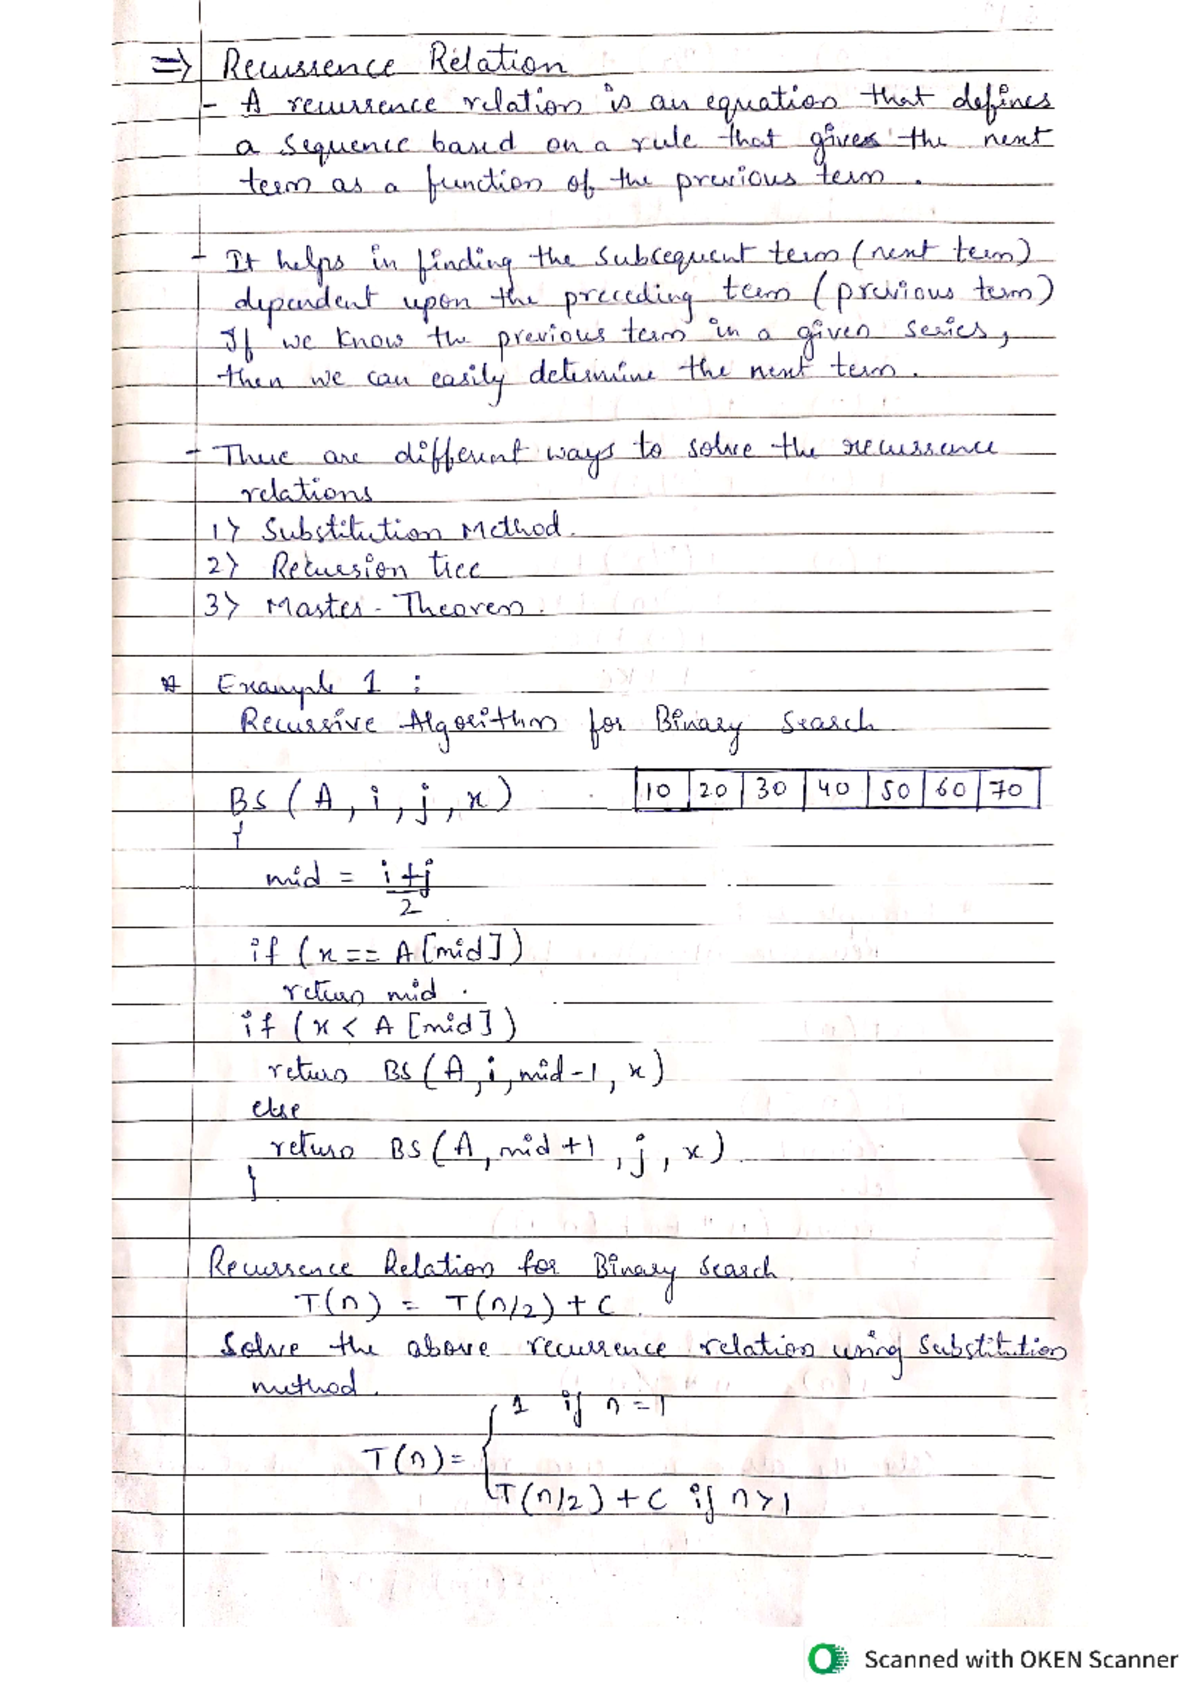 ⇒ Recurrence Relation
- A recurrence relation is an equation that defines
a sequence based on a rule that gives the next
term as a function of the previous term.
- It helps in finding the subsequent term (next term)
dependent upon the preceding term (previous term)
If we know the previous term in a given series,
then we can easily determine the next term.
- There are different ways to solve the recurrence
relations
1) Substitution Method.
2) Recursion tree
3) Master-Theorem.
* Example 1 :
Recursive Algorithm for Binary Search
BS (A, i, j, x) 10 20 30 40 50 60 70
{
mid = i+j
2
if (x == A[mid])
return mid.
if (x < A[mid])
return BS(A, i, mid-1, x)
else
return BS(A, mid+1, j, x).
}
Recurrence Relation for Binary Search.
T(n) = T(n/2) + C.
Solve the above recurrence relation using Substitution
method.
1 if n=1
T(n)= {
T(n/2) + C if n>1
Scanned with OKEN Scanner